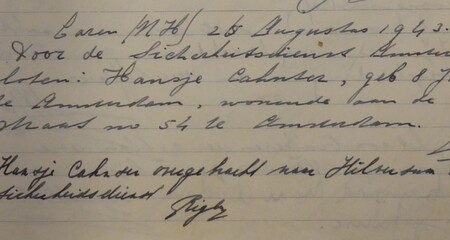 Laren (N.H.) 26 Augustus 1943.
Door de Sicherheitsdienst Amster
sloten: Hansje Cahnter, geb 8 J
te Amsterdam, wonende aan de
straat no 54 te Amsterdam.
Hansje Cahnter overgebracht naar Hilversum
Sicherheidsdienst